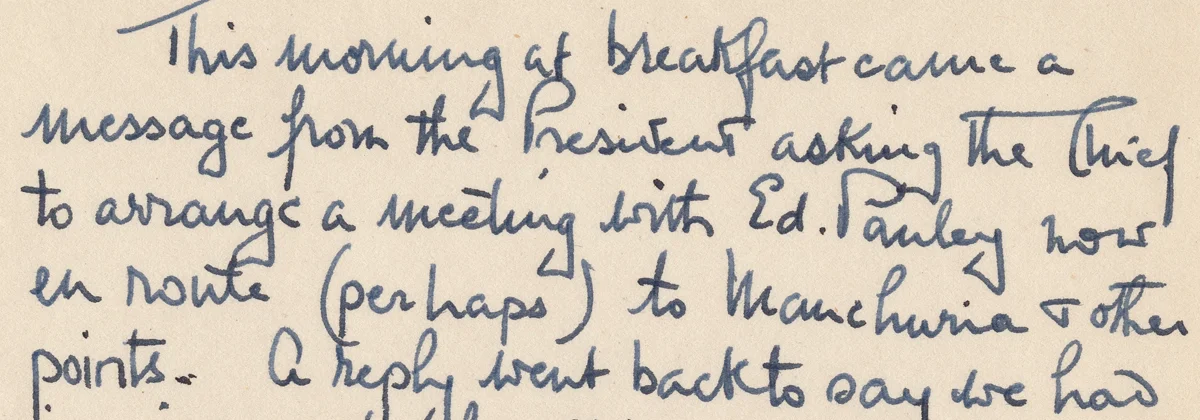 This morning at breakfast came a
message from the President asking the Chief
to arrange a meeting with Ed. Pauley now
en route (perhaps) to Manchuria & other
points. A reply went back to say we had